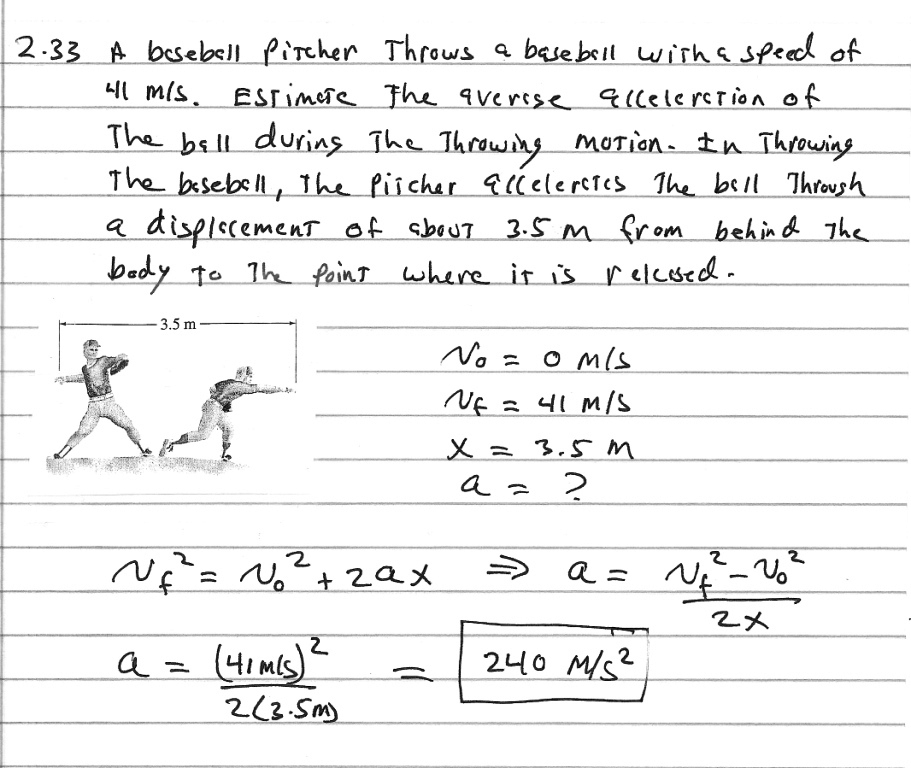 2.33 A baseball pitcher Throws a baseball with a speed of
41 m/s. Estimate The average acceleration of
The ball during The Throwing motion. In Throwing
The baseball, The pitcher accelerates The ball Through
a displacement of about 3.5 m from behind The
body To The point where it is released.
3.5 m
v₀ = 0 m/s
v_f = 41 m/s
x = 3.5 m
a = ?
v_f² = v₀² + 2ax ⇒ a = (v_f² - v₀²) / 2x
a = (41 m/s)² / 2(3.5m) = 240 m/s²